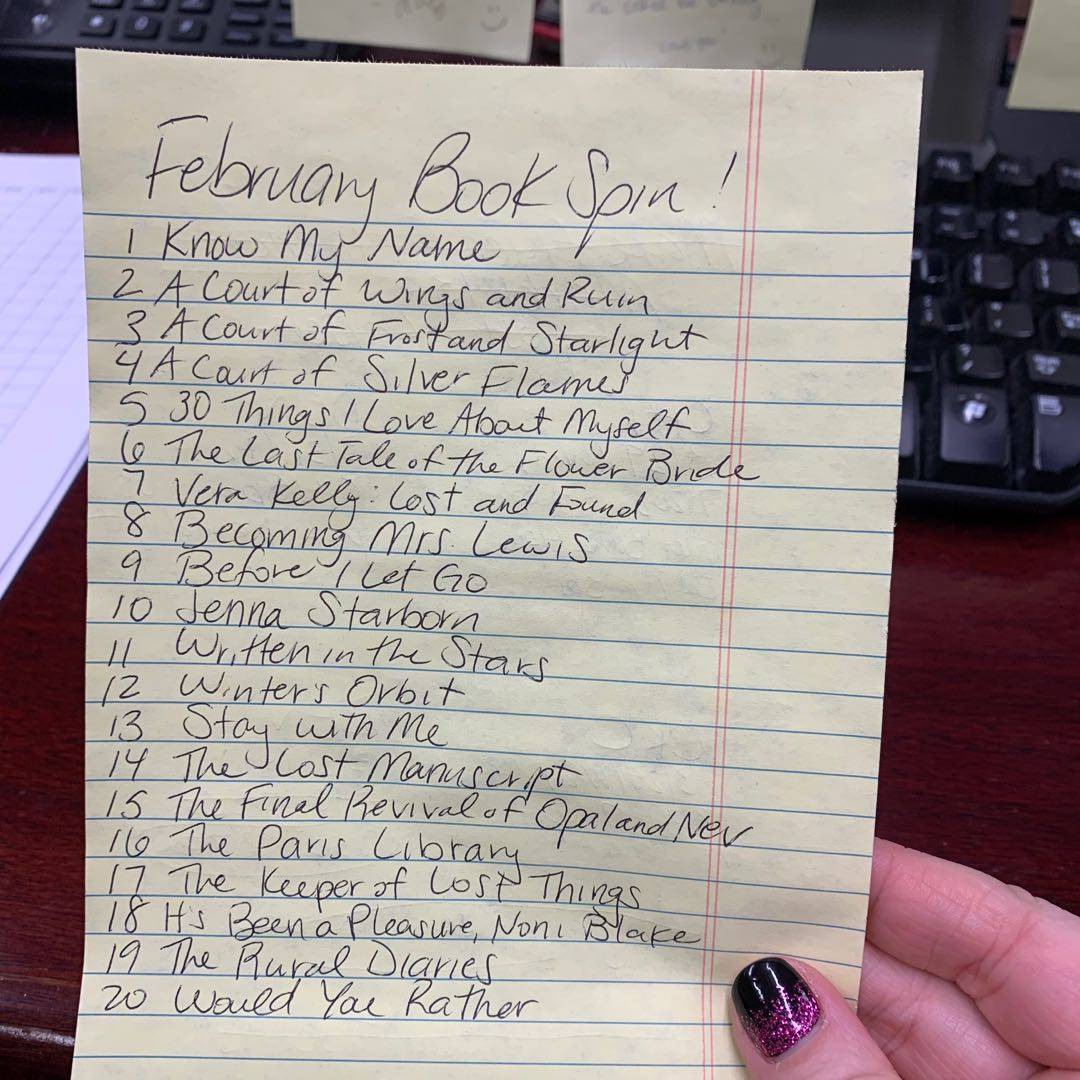 February Book Spin!
1 Know My Name
2 A Court of Wings and Ruin
3 A Court of Frost and Starlight
4 A Court of Silver Flames
5 30 Things I Love About Myself
6 The Last Tale of the Flower Bride
7 Vera Kelly: Lost and Found
8 Becoming Mrs. Lewis
9 Before I Let Go
10 Jenna Starborn
11 Written in the Stars
12 Winter's Orbit
13 Stay with Me
14 The Lost Manuscript
15 The Final Revival of Opal and Nev
16 The Paris Library
17 The Keeper of Lost Things
18 It's Been a Pleasure, Noni Blake
19 The Rural Diaries
20 Would You Rather